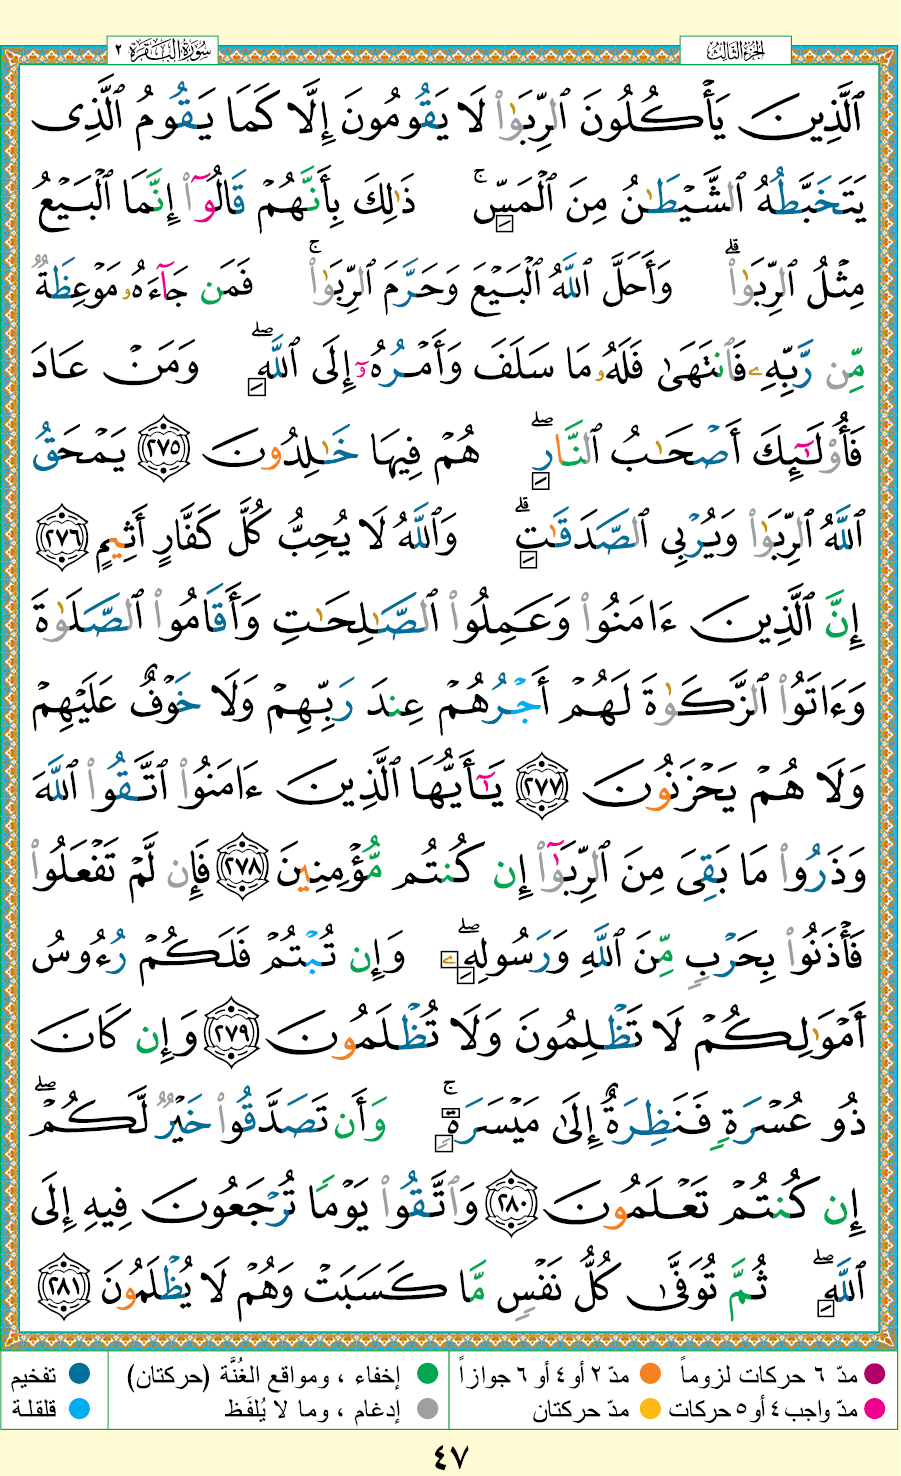 الجزء الثالث
سورة البقرة ٢
ٱلَّذِينَ يَأْكُلُونَ ٱلرِّبَوٰا۟ لَا يَقُومُونَ إِلَّا كَمَا يَقُومُ ٱلَّذِى
يَتَخَبَّطُهُ ٱلشَّيْطَٰنُ مِنَ ٱلْمَسِّ ۚ ذَٰلِكَ بِأَنَّهُمْ قَالُوٓا۟ إِنَّمَا ٱلْبَيْعُ
مِثْلُ ٱلرِّبَوٰا۟ ۗ وَأَحَلَّ ٱللَّهُ ٱلْبَيْعَ وَحَرَّمَ ٱلرِّبَوٰا۟ ۚ فَمَن جَآءَهُۥ مَوْعِظَةٌ
مِّن رَّبِّهِۦ فَٱنتَهَىٰ فَلَهُۥ مَا سَلَفَ وَأَمْرُهُۥٓ إِلَى ٱللَّهِ ۖ وَمَنْ عَادَ
فَأُو۟لَٰٓئِكَ أَصْحَٰبُ ٱلنَّارِ ۖ هُمْ فِيهَا خَٰلِدُونَ ٢٧٥ يَمْحَقُ
ٱللَّهُ ٱلرِّبَوٰا۟ وَيُرْبِى ٱلصَّدَقَٰتِ ۗ وَٱللَّهُ لَا يُحِبُّ كُلَّ كَفَّارٍ أَثِيمٍ ٢٧٦
إِنَّ ٱلَّذِينَ ءَامَنُوا۟ وَعَمِلُوا۟ ٱلصَّٰلِحَٰتِ وَأَقَامُوا۟ ٱلصَّلَوٰةَ
وَءَاتَوُا۟ ٱلزَّكَوٰةَ لَهُمْ أَجْرُهُمْ عِندَ رَبِّهِمْ وَلَا خَوْفٌ عَلَيْهِمْ
وَلَا هُمْ يَحْزَنُونَ ٢٧٧ يَٰٓأَيُّهَا ٱلَّذِينَ ءَامَنُوا۟ ٱتَّقُوا۟ ٱللَّهَ
وَذَرُوا۟ مَا بَقِىَ مِنَ ٱلرِّبَوٰٓا۟ إِن كُنتُم مُّؤْمِنِينَ ٢٧٨ فَإِن لَّمْ تَفْعَلُوا۟
فَأْذَنُوا۟ بِحَرْبٍ مِّنَ ٱللَّهِ وَرَسُولِهِۦ ۖ وَإِن تُبْتُمْ فَلَكُمْ رُءُوسُ
أَمْوَٰلِكُمْ لَا تَظْلِمُونَ وَلَا تُظْلَمُونَ ٢٧٩ وَإِن كَانَ
ذُو عُسْرَةٍ فَنَظِرَةٌ إِلَىٰ مَيْسَرَةٍ ۚ وَأَن تَصَدَّقُوا۟ خَيْرٌ لَّكُمْ ۖ
إِن كُنتُمْ تَعْلَمُونَ ٢٨٠ وَٱتَّقُوا۟ يَوْمًا تُرْجَعُونَ فِيهِ إِلَى
ٱللَّهِ ۖ ثُمَّ تُوَفَّىٰ كُلُّ نَفْسٍ مَّا كَسَبَتْ وَهُمْ لَا يُظْلَمُونَ ٢٨١
مدّ ٦ حركات لزوماً مدّ ٢ أو ٤ أو ٦ جوازاً إخفاء ، ومواقع الغُنَّة (حركتان) تفخيم
مدّ واجب ٤ أو ٥ حركات مدّ حركتان إدغام ، وما لا يُلفَظ قلقلة
٤٧